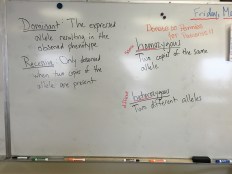 Dominant: The expressed
allele resulting in the
observed phenotype.
Recessive: Only observed
when two copies of the
allele are present
Friday, Ma
homozygous
Two copies of the same
allele
heterozygous
Two different alleles